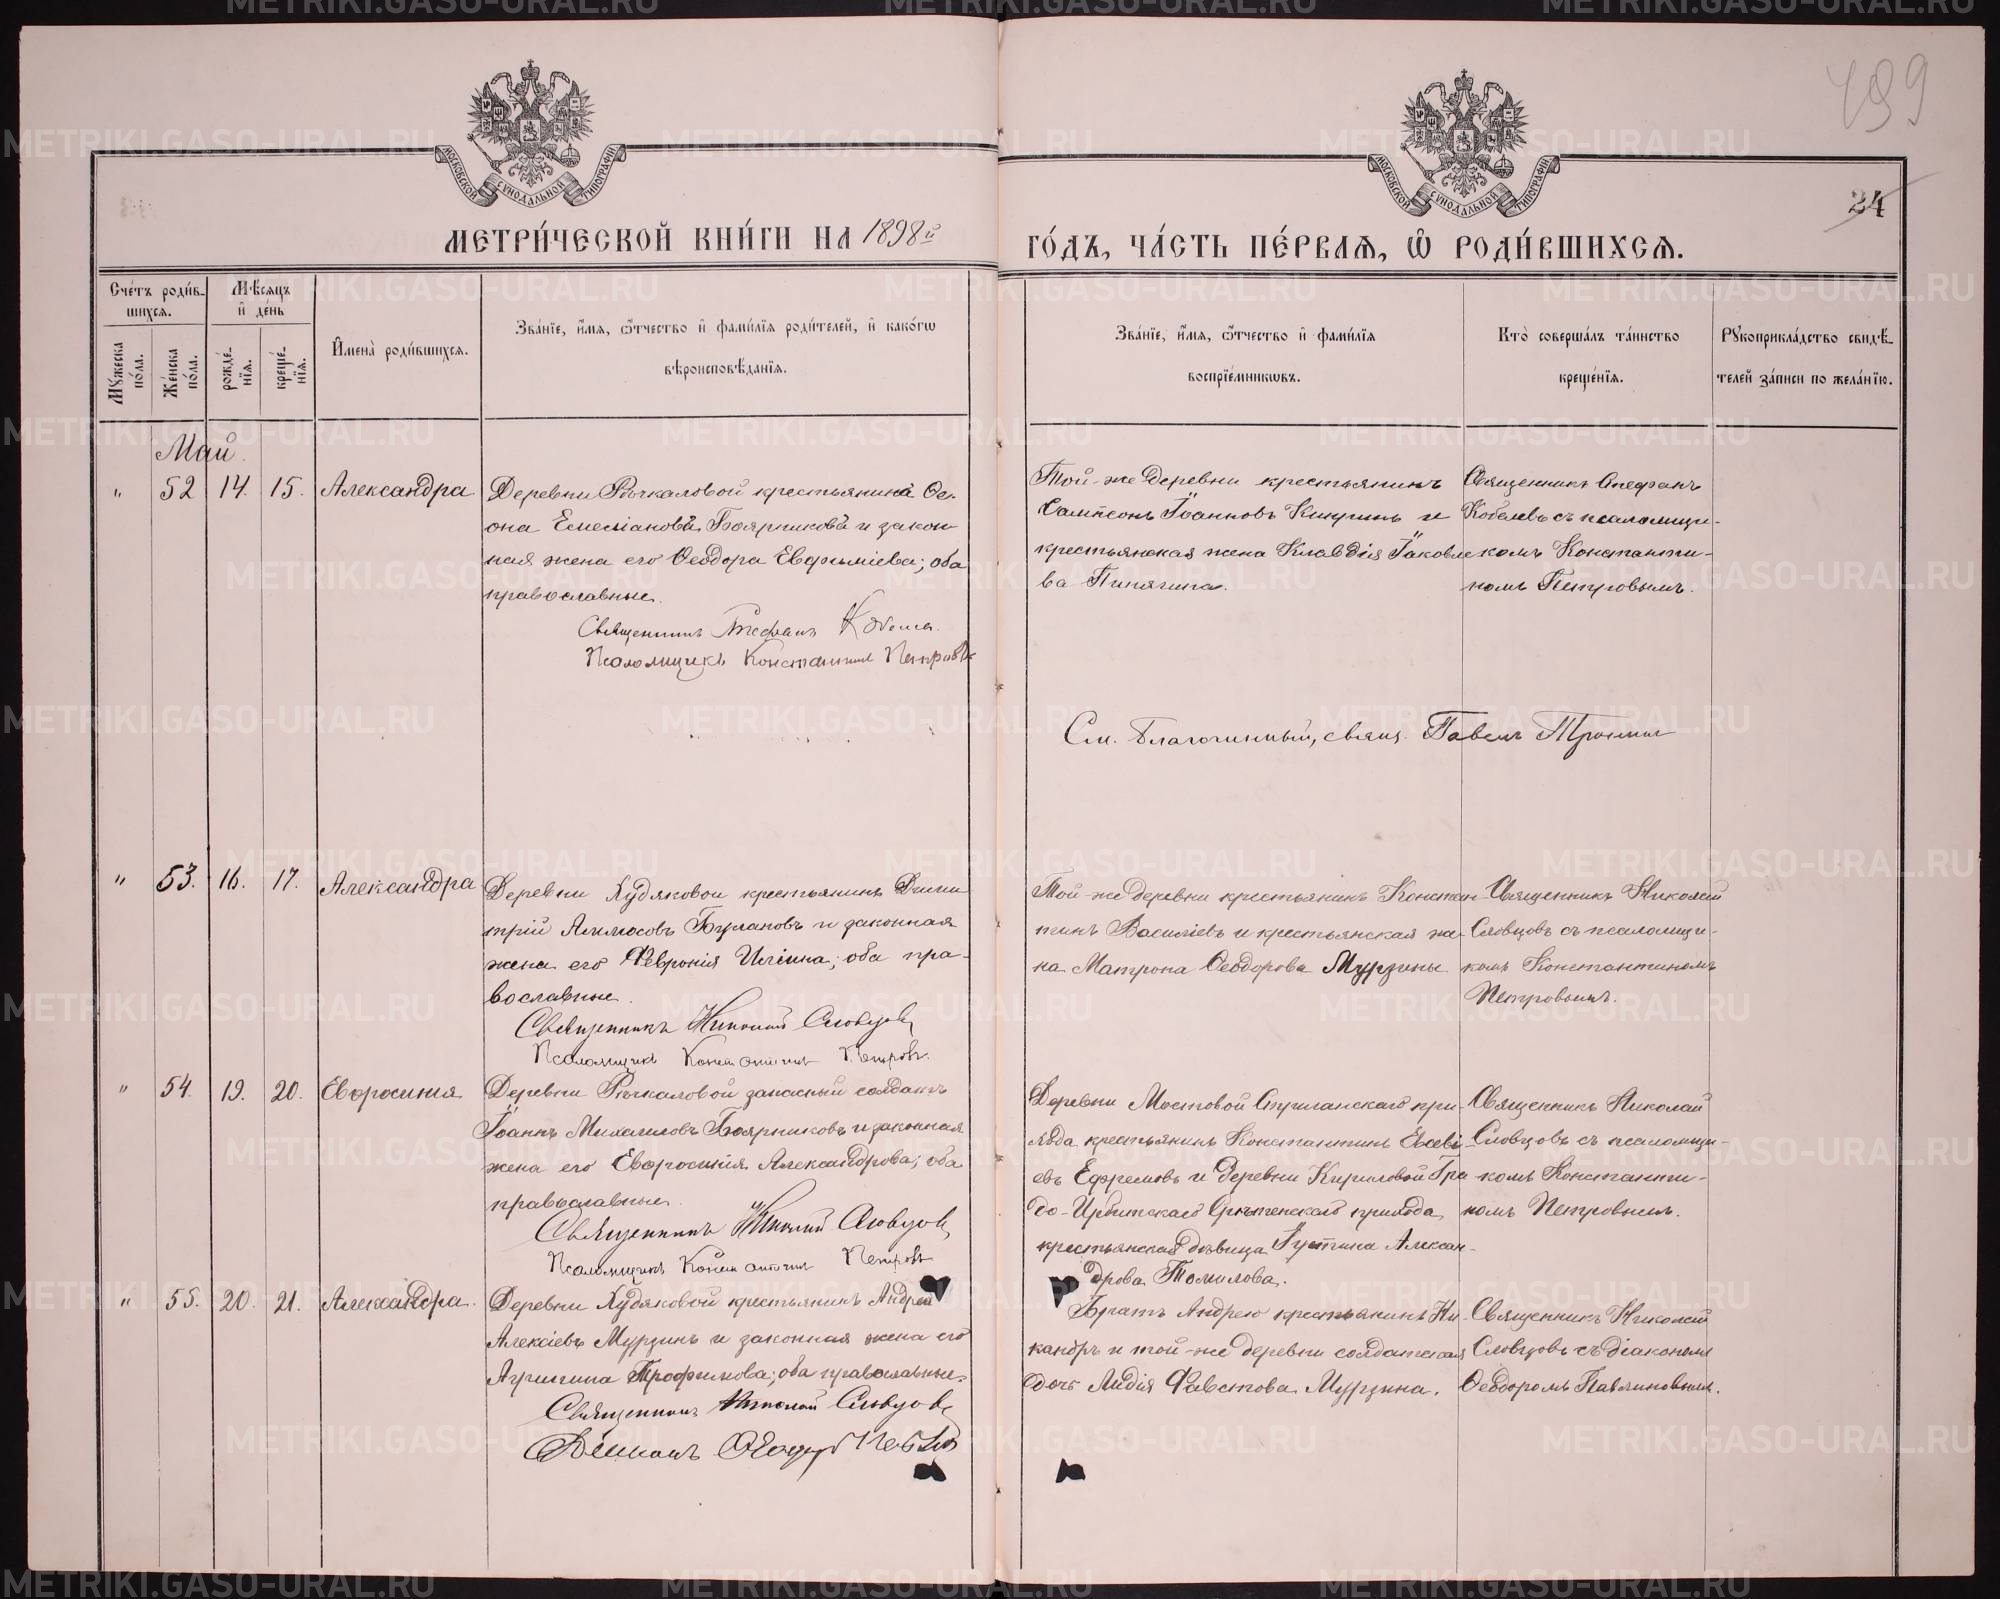 499
24
МОСКОВСКОЙ СУНОДАЛЬНОЙ ТИПОГРАФІИ
МОСКОВСКОЙ СУНОДАЛЬНОЙ ТИПОГРАФІИ
МЕТРИ́ЧЕСКОЙ КНИ́ГИ НА 1898й
ГО́ДЪ, ЧА́СТЬ ПЕ́РВАЯ, Ѽ РОДИ́ВШИХСЯ.
Сче́тъ роди́в-
шихся.
Мѣ́сяцъ
и҆ де́нь
Мꙋжеска по́ла.
Же́нска по́ла.
рожде́-
нїя.
креще́-
нїя.
И҆мена̀ роди́вшихся.
Зва́нїе, и҆́мя, ѻ҆́тчество и҆ фами́лїя роди́телей, и҆ како́гѡ
вѣроисповѣ́данїя.
Зва́нїе, и҆́мя, ѻ҆́тчество и҆ фами́лїя
воспрїе́мникѡвъ.
Кто̀ соверша́лъ та́инство
креще́нїя.
Рꙋкоприкла́дство свидѣ́-
телей за́писи по жела́нїю.
Май
" 52 14. 15. Александра
Деревни Рычкаловой крестьянинъ Ѳе-
она Емеліановъ Бояринковъ и закон-
ная жена его Ѳеодора Евфиміева; оба
православные.
Священникъ Стефанъ Кобелевъ
Псаломщикъ Константинъ Петровъ
Той-же деревни крестьянинъ
Сампсонъ Іоанновъ Кичигинъ и
крестьянская жена Клавдія Іаковле
ва Пинягина.
Священникъ Стефанъ
Кобелевъ съ псаломщи-
комъ Константи-
номъ Петровымъ.
См. Благочинный, свящ. Павелъ
" 53. 16. 17. Александра
Деревни Худяковой крестьянинъ Дими
трій Булановъ и законная
жена его Февронія Иліина; оба пра-
вославные.
Священникъ Николай Словцовъ
Псаломщикъ Константинъ Петровъ.
Той-же деревни крестьянинъ Констан-
тинъ Василіевъ и крестьянская же-
на Матрона Ѳеодорова Мурзины
Священникъ Николай
Словцовъ съ псаломщи-
комъ Константиномъ
Петровымъ.
" 54. 19. 20. Евфросинія
Деревни Рычкаловой запасный солдатъ
Іоаннъ Михаиловъ Бояринковъ и законная
жена его Евфросинія Александрова; оба
православные.
Священникъ Николай Словцовъ
Псаломщикъ Константинъ Петровъ
Деревни Мостовой Стриганскаго при-
хода крестьянинъ Константинъ Евсеві-
евъ Ефремовъ и деревни Кириловой Гра
до-Ирбитскаго Срѣтенскаго прихода
крестьянская дѣвица Іустина Алексан-
дрова Томилова.
Священникъ Николай
Словцовъ съ псаломщи-
комъ Константи-
номъ Петровымъ.
" 55. 20. 21. Александра.
Деревни Худяковой крестьянинъ Андрей
Алексіевъ Мурзинъ и законная жена его
Агрипина Трофимова; оба православные.
Священникъ Николай Словцовъ
Діаконъ Ѳеодоръ
Братъ Андрею крестьянинъ Ни-
кандръ и той-же деревни солдатская
дочь Лидія Фавстова Мурзина.
Священникъ Николай
Словцовъ съ діакономъ
Ѳеодоромъ Павлиновымъ.
METRIKI.GASO-URAL.RU